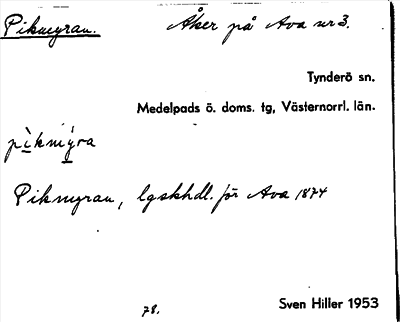 Pikmyran. Åker på Ava nr 3.
Tynderö sn.
Medelpads ö. doms. tg, Västernorrl. län.
pìkmýra
Pikmyran, lgskhdl. för Ava 1874
78.
Sven Hiller 1953